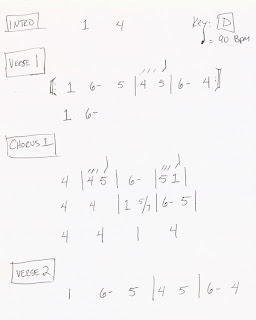 INTRO 1 4 Key: D
♩ = 90 BPM
VERSE 1
𝄆 1 6- 5 | 4 5 | 6- 4 𝄇
1 6-
CHORUS 1
4 | 4 5 | 6- | 5 1 |
4 4 | 1 5/7 | 6- 5 |
4 4 1 4
VERSE 2
1 6- 5 | 4 5 | 6- 4